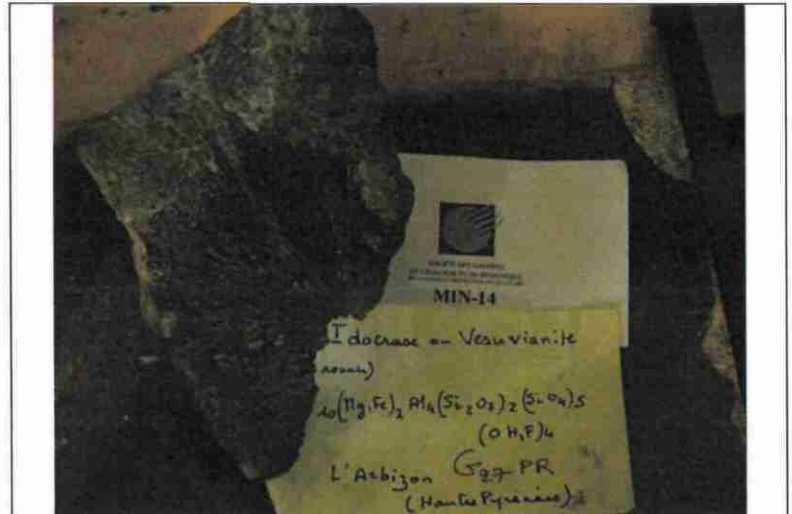 MIN-14
Idocrase ou Vesuvianite
(Mg,Fe)2 Al4(Si2O7)2(SiO4)5
(OH,F)4
L'Arbizon G97 PR
(Hautes Pyrénées)